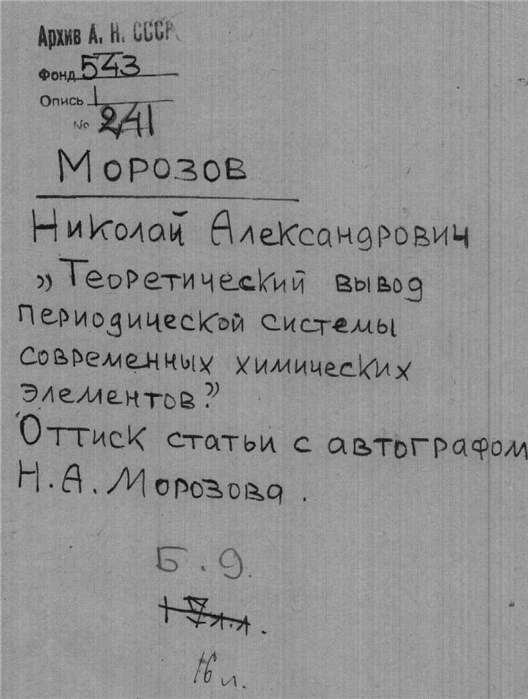 Архив А. Н. СССР
Фонд 543
Опись 1
№ 241
Морозов
Николай Александрович
„Теоретический вывод
периодической системы
современных химических
элементов?”
Оттиск статьи с автографом
Н.А. Морозова.
Б.д.
16 л.